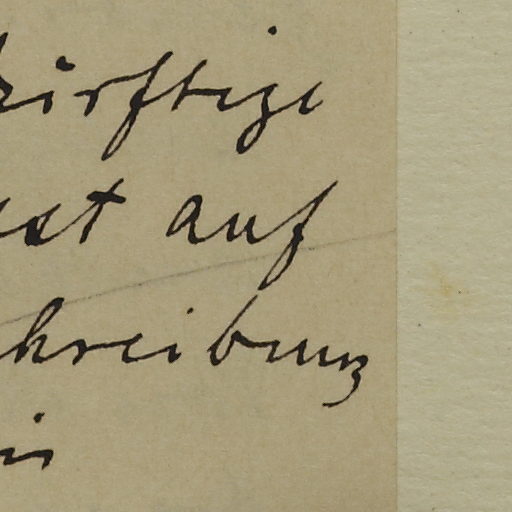 dürftige
auf
chreibung